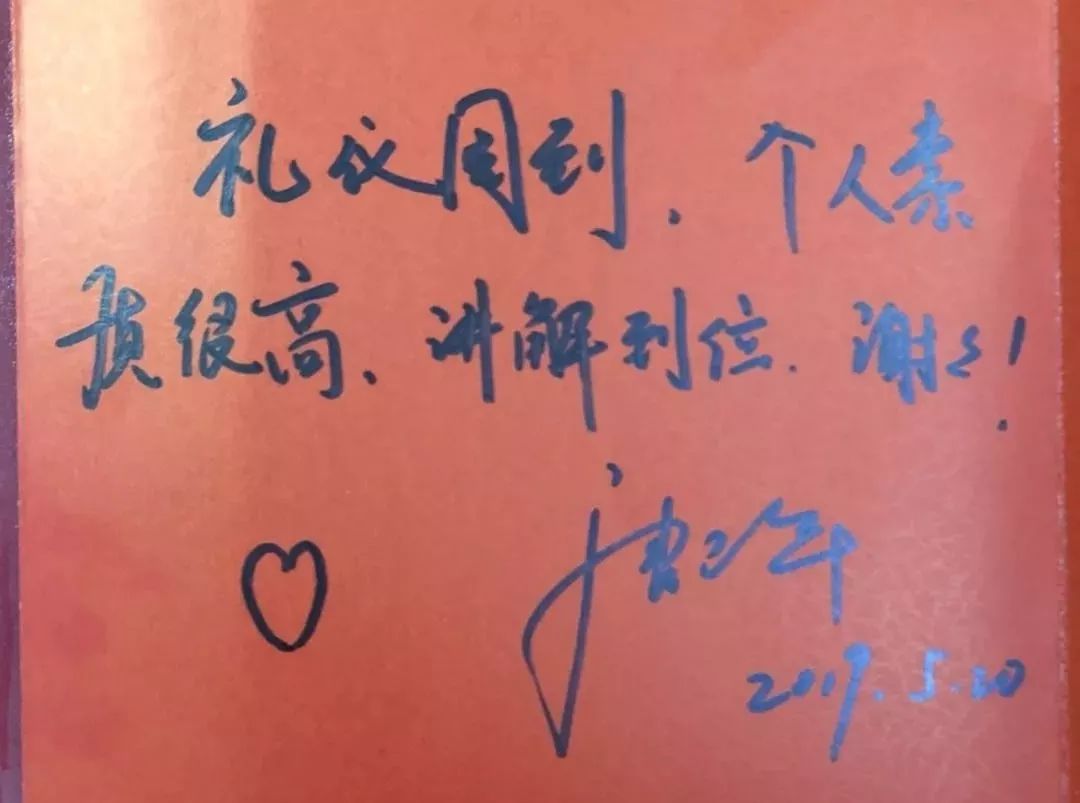 礼仪周到、个人素
质很高、讲解到位、谢谢!
2019.5.20